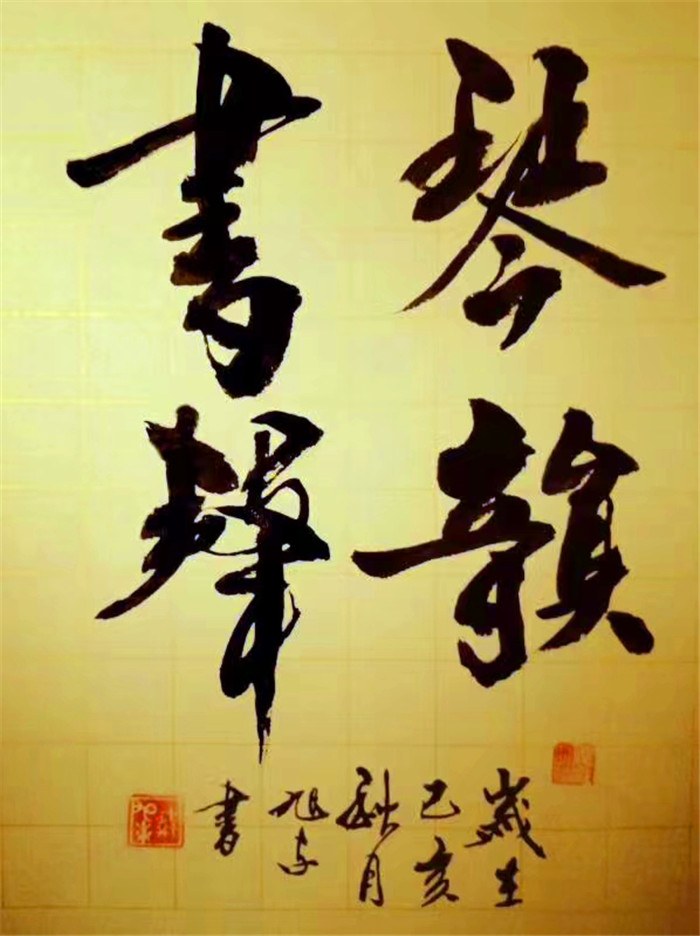 琴韻
書聲
歲在
己亥
秋月
旭
書